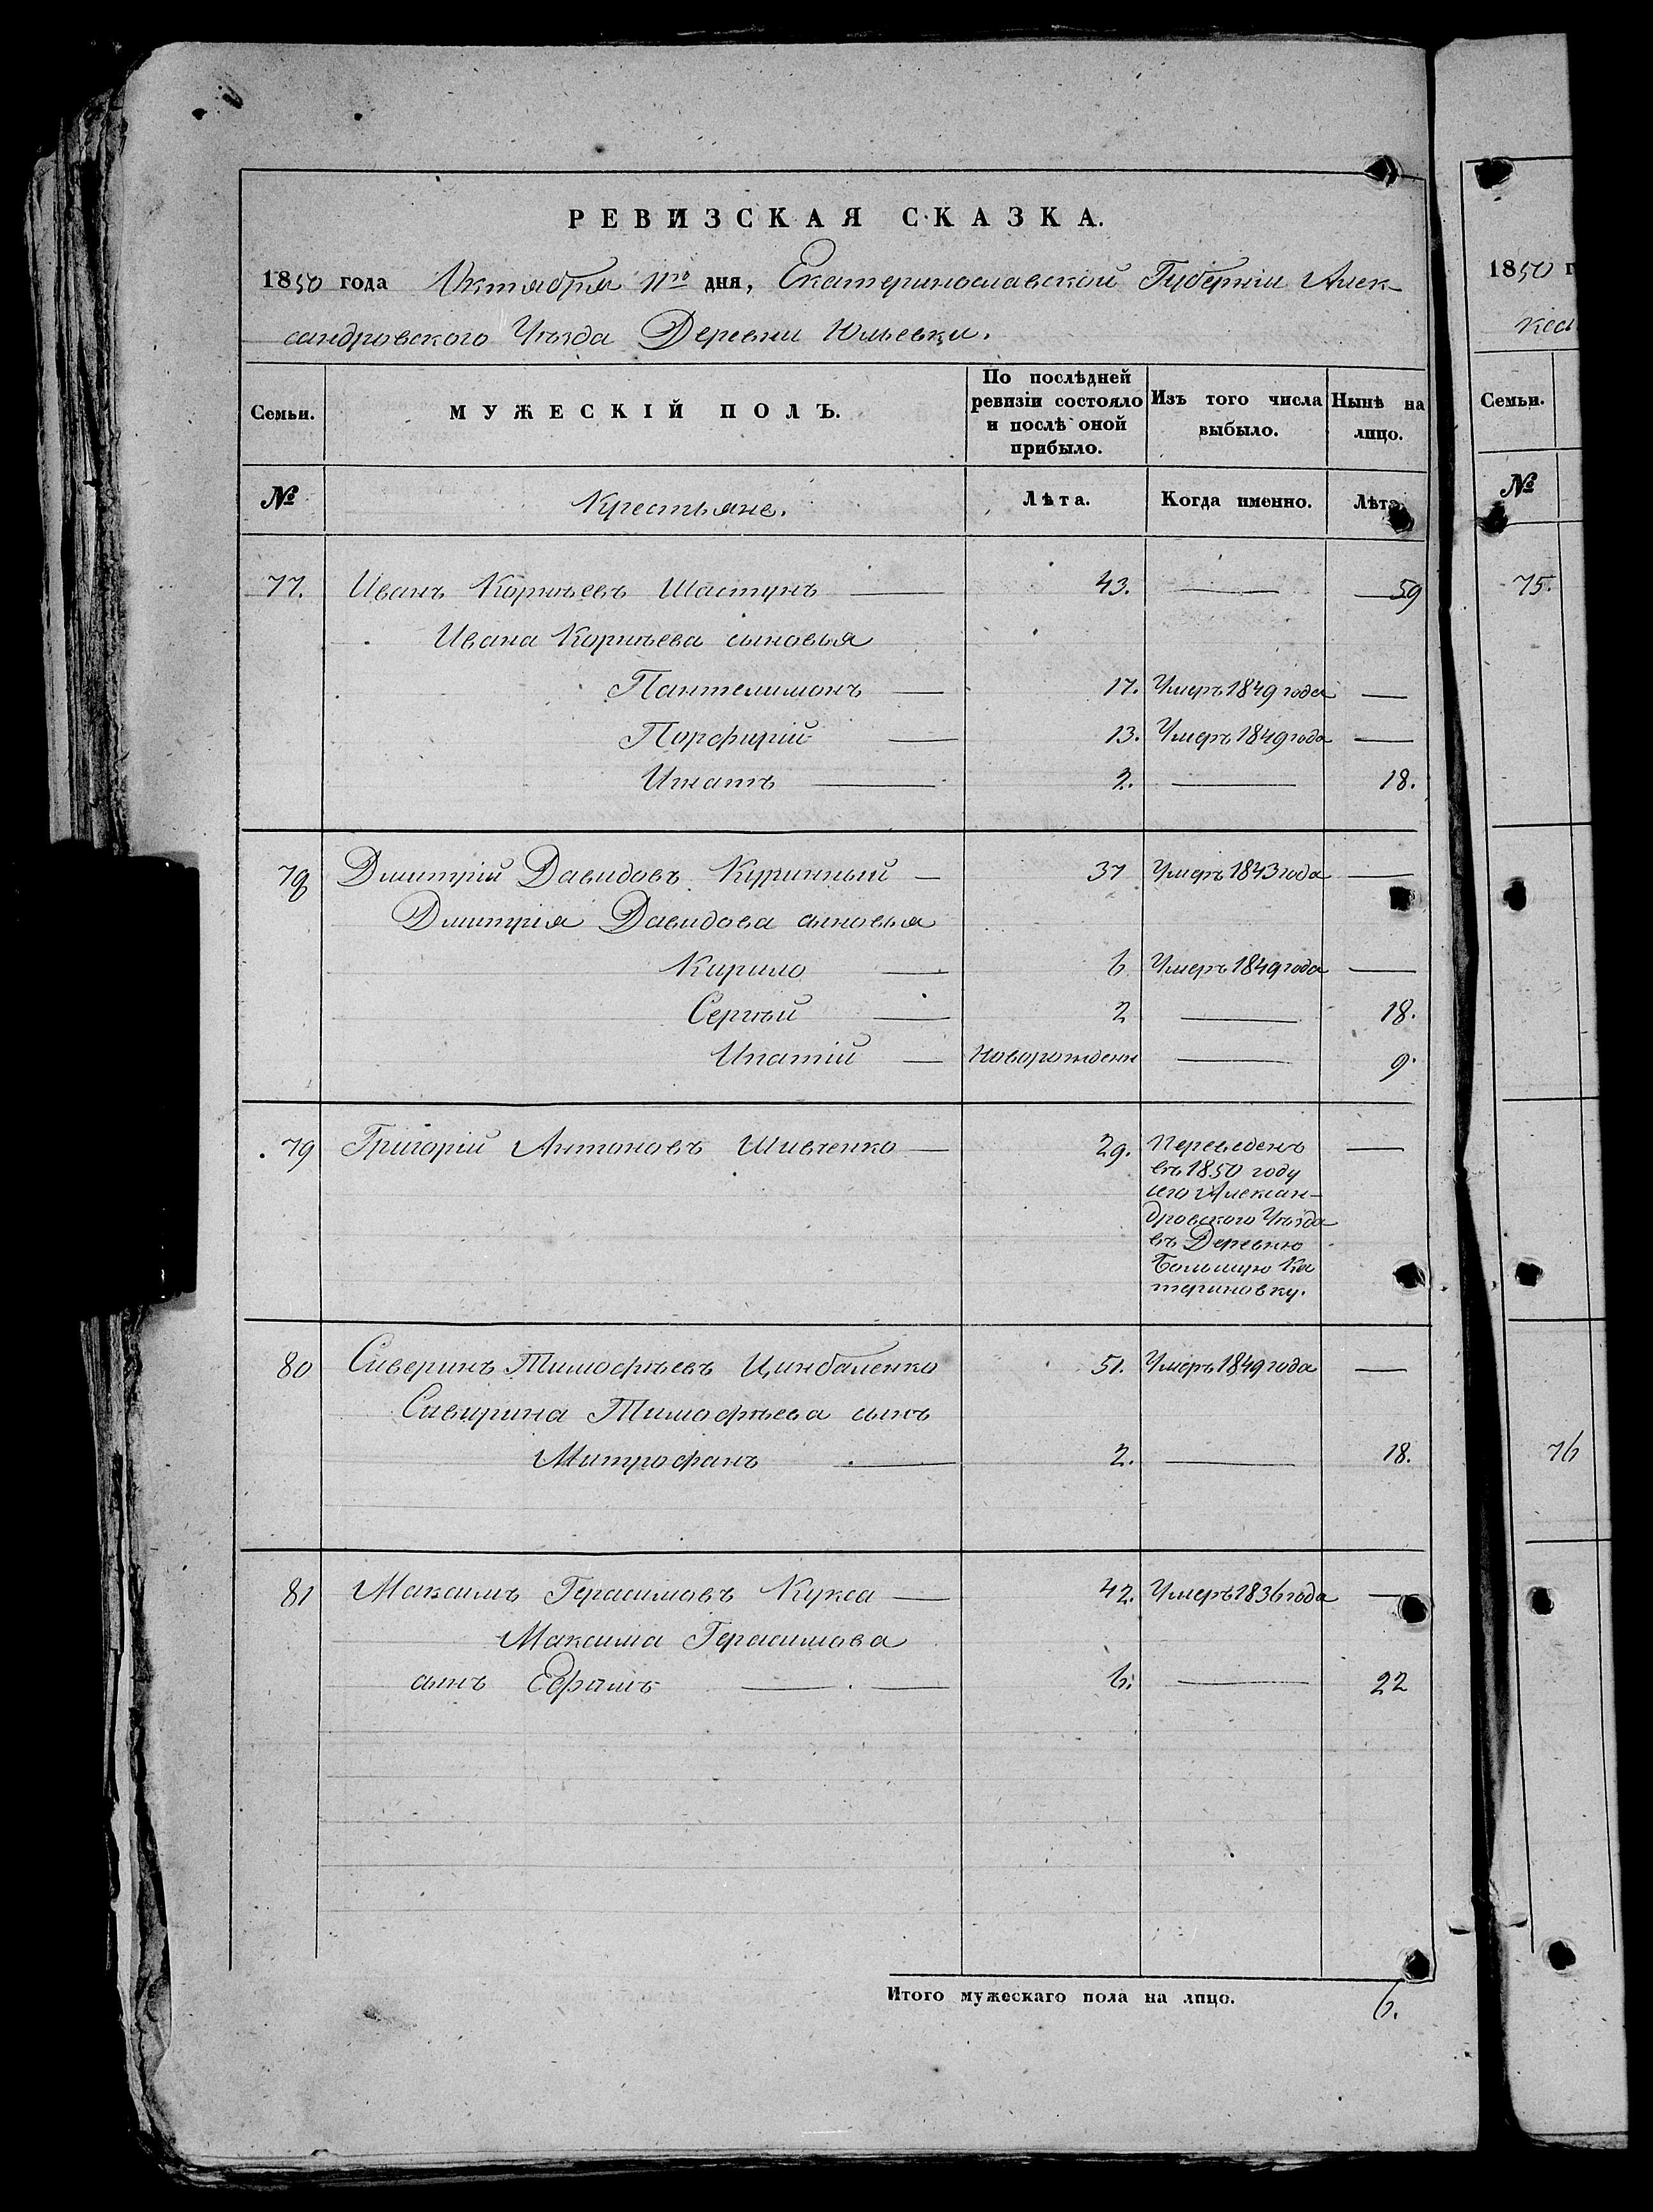 РЕВИЗСКАЯ СКАЗКА.
1850 года Октября 11го дня, Екатеринославской Губерніи Алек-
сандровского Уѣзда Деревни Юльевки.
Семьи. МУЖЕСКІЙ ПОЛЪ. По послѣдней ревизіи состояло и послѣ оной прибыло. Изъ того числа выбыло. Нынѣ на лицо.
№ Крестьяне. Лѣта. Когда именно. Лѣта
77. Иванъ Корнѣевъ Шастунъ — 43. — 59
Ивана Корнѣева сыновья
Пантелимонъ — 17. Умеръ 1849 года —
Порфирій — 13. Умеръ 1849 года —
Игнатъ — 2. — 18.
78 Дмитрій Давидовъ Куринный — 37 Умеръ 1843 года —
Дмитрія Давидова сыновья
Кирило — 6 Умеръ 1849 года —
Сергѣй — 2 — 18.
Ипатій — Новорожденн — 9.
79 Григорій Антоновъ Шивченко — 29. Переведенъ —
въ 1850 году
сего Алексан-
дровского Уѣзда
въ Деревню
Большую Ка
териновку.
80 Сиверинъ Тимофѣевъ Цинбаленко 51. Умеръ 1849 года —
Сивирина Тимофѣева сынъ
Митрофанъ — 2. — 18.
81 Максимъ Герасимовъ Кукса — 42. Умеръ 1836 года —
Максима Герасимова
сынъ Ефимъ — 6. — 22
Итого мужескаго пола на лицо. 6.
1850 г
Семьи.
№
75.
76